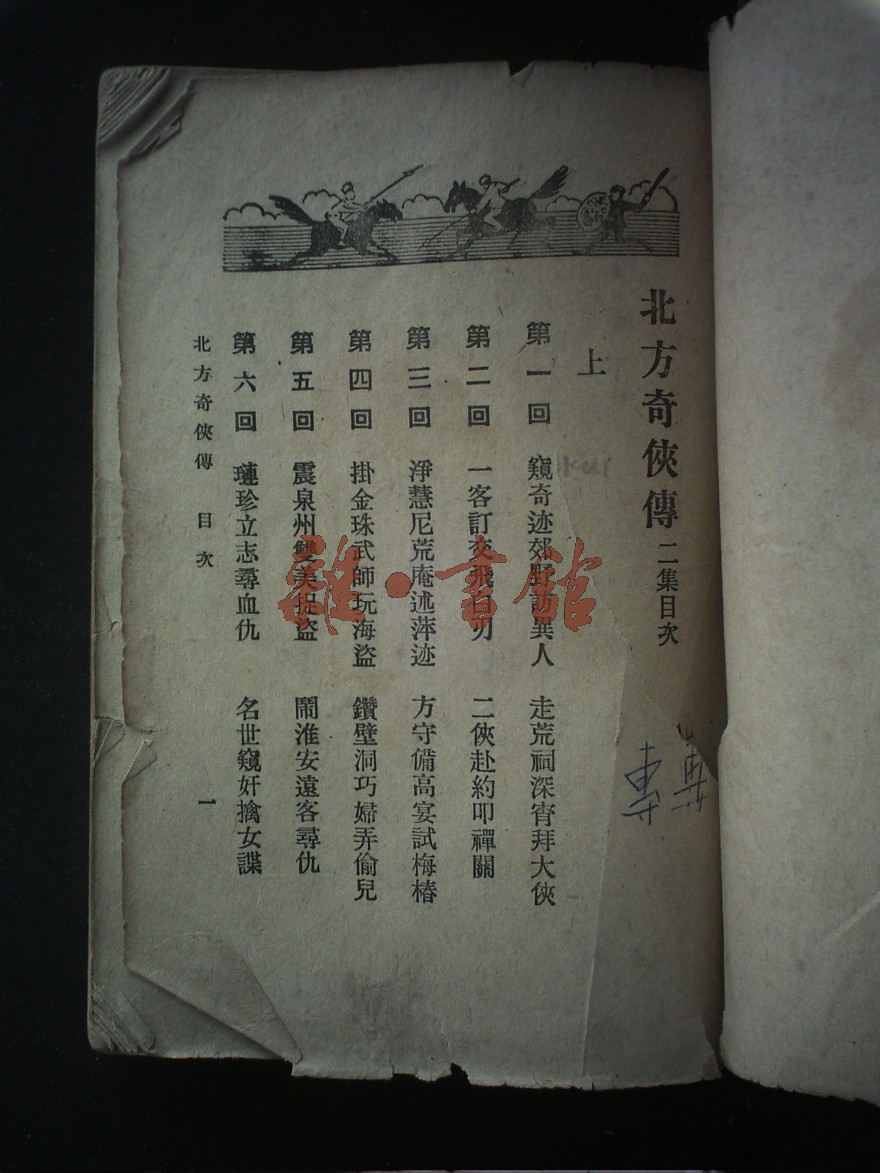 北方奇俠傳 二集目次
上
第一回 窺奇迹郊野訪異人 走荒祠深宵拜大俠
第二回 一客訂交飛白刃 二俠赴約叩禪關
第三回 淨慧尼荒庵述萍迹 方守備高宴試梅樁
第四回 掛金珠武師玩海盜 鑽壁洞巧婦弄偷兒
第五回 震泉州雙美捉盜 鬧淮安遠客尋仇
第六回 璉珍立志尋血仇 名世窺奸擒女諜
北方奇俠傳 目次 一
kui
雜·書館